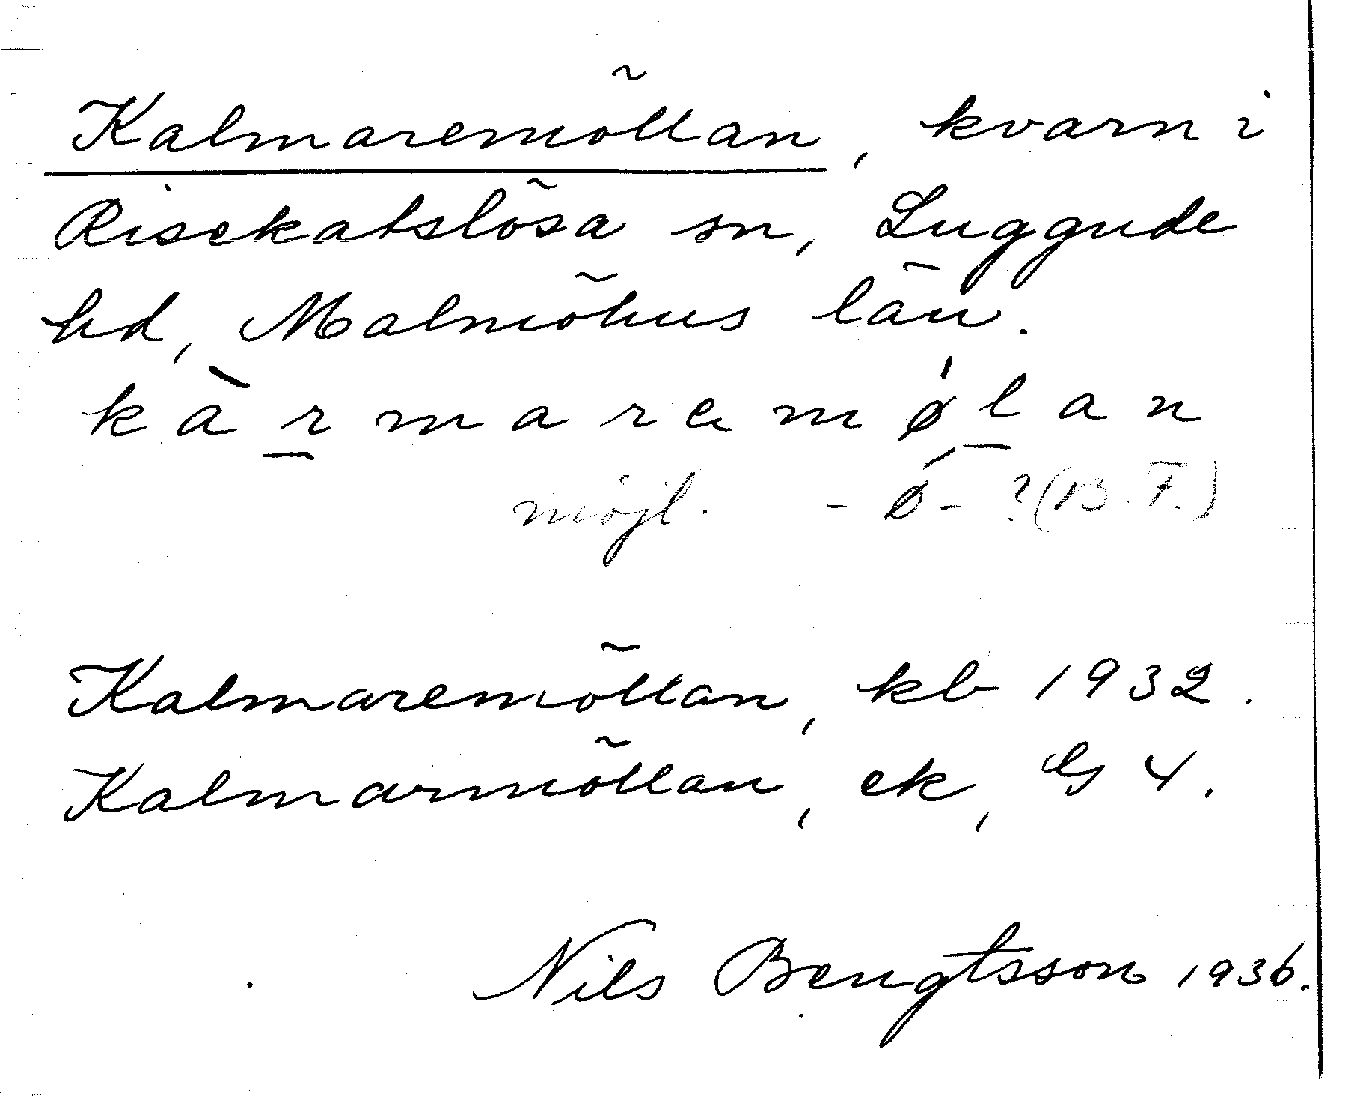 Kalmaremöllan, kvarn i
Risekatslösa sn, Luggude
hd, Malmöhus län.
kàr̲maremǿl̲an
möjl. -ǿ- ? (B. F.)
Kalmaremöllan, kb 1932.
Kalmarmöllan, ek, G 4.
Nils Bengtsson 1936.